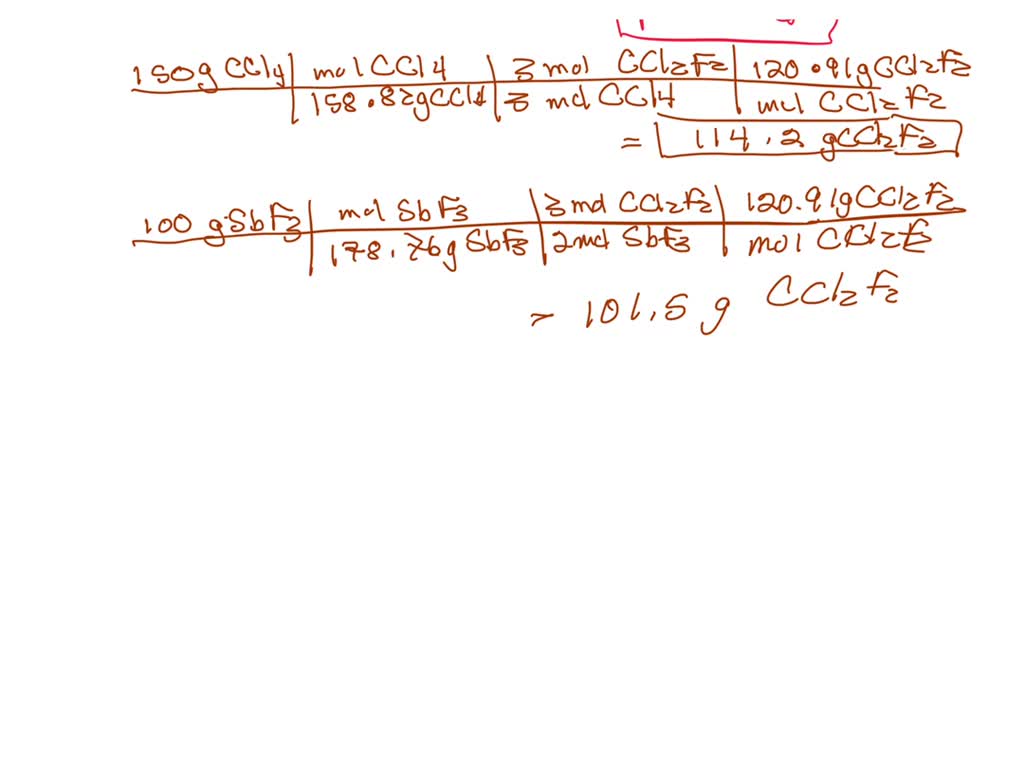 150g CCl4 | mol CCl4 | 3 mol CCl2F2 | 120.91gCCl2F2
158.82gCCl4 | 3 mol CCl4 | mol CCl2F2
= 114.2 gCCl2F2
100 g SbF3 | mol SbF3 | 3 mol CCl2F2 | 120.91gCCl2F2
178.76g SbF3 | 2 mol SbF3 | mol CCl2F2
= 101.5 g CCl2F2